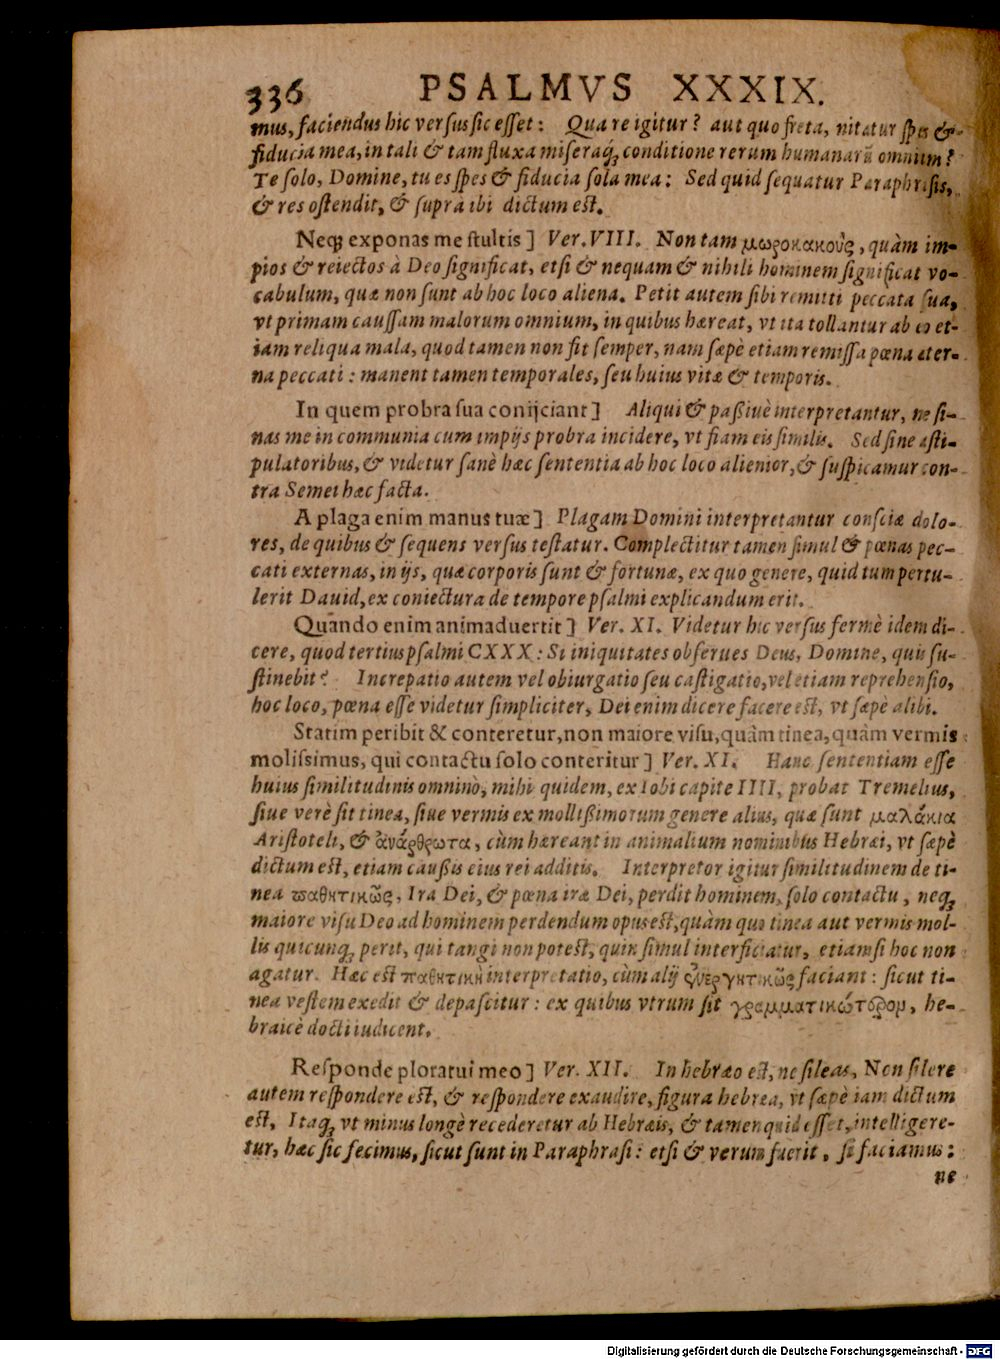 336 PSALMVS XXXIX.
mus, faciendus hic versus sic esset: Qua re igitur? aut quo freta, nitatur spes &
fiducia mea, in tali & tam fluxa miseraq; conditione rerum humanarũ omnium?
Te solo, Domine, tu es spes & fiducia sola mea: Sed quid sequatur Paraphrasis,
& res ostendit, & suprà ibi dictum est.
Neq; exponas me stultis] Ver. VIII. Non tam μωροκακοὺς, quàm im-
pios & reiectos à Deo significat, etsi & nequam & nihili hominem significat vo-
cabulum, quæ non sunt ab hoc loco aliena. Petit autem sibi remitti peccata sua,
vt primam caussam malorum omnium, in quibus hæreat, vt ita tollantur ab eo et-
iam reliqua mala, quod tamen non fit semper, nam sæpè etiam remissa pœna æter-
na peccati: manent tamen temporales, seu huius vitæ & temporis.
In quem probra sua conijciant] Aliqui & paßiuè interpretantur, ne si-
nas me in communia cum impijs probra incidere, vt fiam eis similis. Sed sine asti-
pulatoribus, & videtur sanè hæc sententia ab hoc loco alienior, & suspicamur con-
tra Semei hæc facta.
A plaga enim manus tuæ] Plagam Domini interpretantur consciæ dolo-
res, de quibus & sequens versus testatur. Complectitur tamen simul & pœnas pec-
cati externas, in ijs, quæ corporis sunt & fortunæ, ex quo genere, quid tum pertu-
lerit Dauid, ex coniectura de tempore psalmi explicandum erit.
Quando enim animaduertit] Ver. XI. Videtur hic versus fermè idem di-
cere, quod tertius psalmi CXXX: Si iniquitates obserues Deus, Domine, quis su-
stinebit? Increpatio autem vel obiurgatio seu castigatio, vel etiam reprehensio,
hoc loco, pœna esse videtur simpliciter, Dei enim dicere facere est, vt sæpè alibi.
Statim peribit & conteretur, non maiore visu, quàm tinea, quàm vermis
molissimus, qui contactu solo conteritur] Ver. XI. Hanc sententiam esse
huius similitudinis omninò, mihi quidem, ex Iobi capite IIII, probat Tremelius,
siue verè sit tinea, siue vermis ex mollißimorum genere alius, quæ sunt μαλάκια
Aristoteli, & ἀνάρθρωτα, cùm hæreant in animalium nominibus Hebræi, vt sæpè
dictum est, etiam caußis eius rei additis. Interpretor igitur similitudinem de ti-
nea παθητικῶς, Ira Dei, & pœna iræ Dei, perdit hominem, solo contactu, neq;
maiore visu Deo ad hominem perdendum opus est, quàm quo tinea aut vermis mol-
lis quicunq; perit, qui tangi non potest, quin simul interficiatur, etiamsi hoc non
agatur. Hæc est παθητικὴ interpretatio, cùm alij ἐνεργητικῶς faciant: sicut ti-
nea vestem exedit & depascitur: ex quibus vtrum sit γραμματικώτερον, he-
braicè docti iudicent.
Responde ploratui meo] Ver. XII. In hebræo est, ne sileas, Non silere
autem respondere est, & respondere exaudire, figura hebræa, vt sæpè iam dictum
est, Itaq; vt minus longè recederetur ab Hebræis, & tamen quid esset, intelligere-
tur, hæc sic fecimus, sicut sunt in Paraphrasi: etsi & verum fuerit, si faciamus:
ne
Digitalisierung gefördert durch die Deutsche Forschungsgemeinschaft - DFG